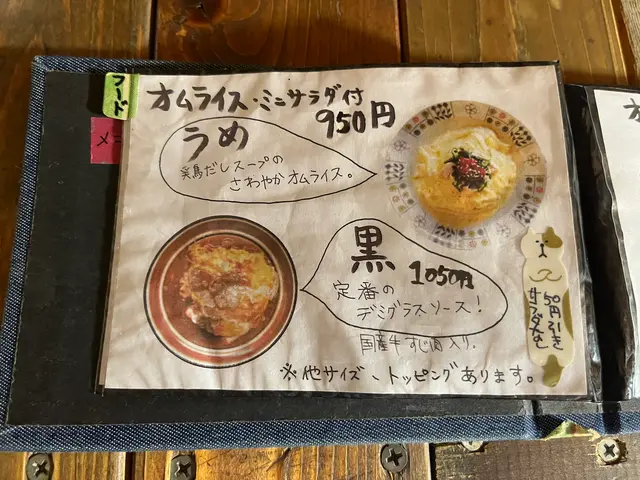 フード
オムライス・ミニサラダ付
950円
うめ
鶏だしスープの
さわやかオムライス。
黒 1050円
定番の
デミグラスソース!
国産牛すじ肉入り。
サラダなし
50円引き
※他サイズ、トッピングあります。
メ